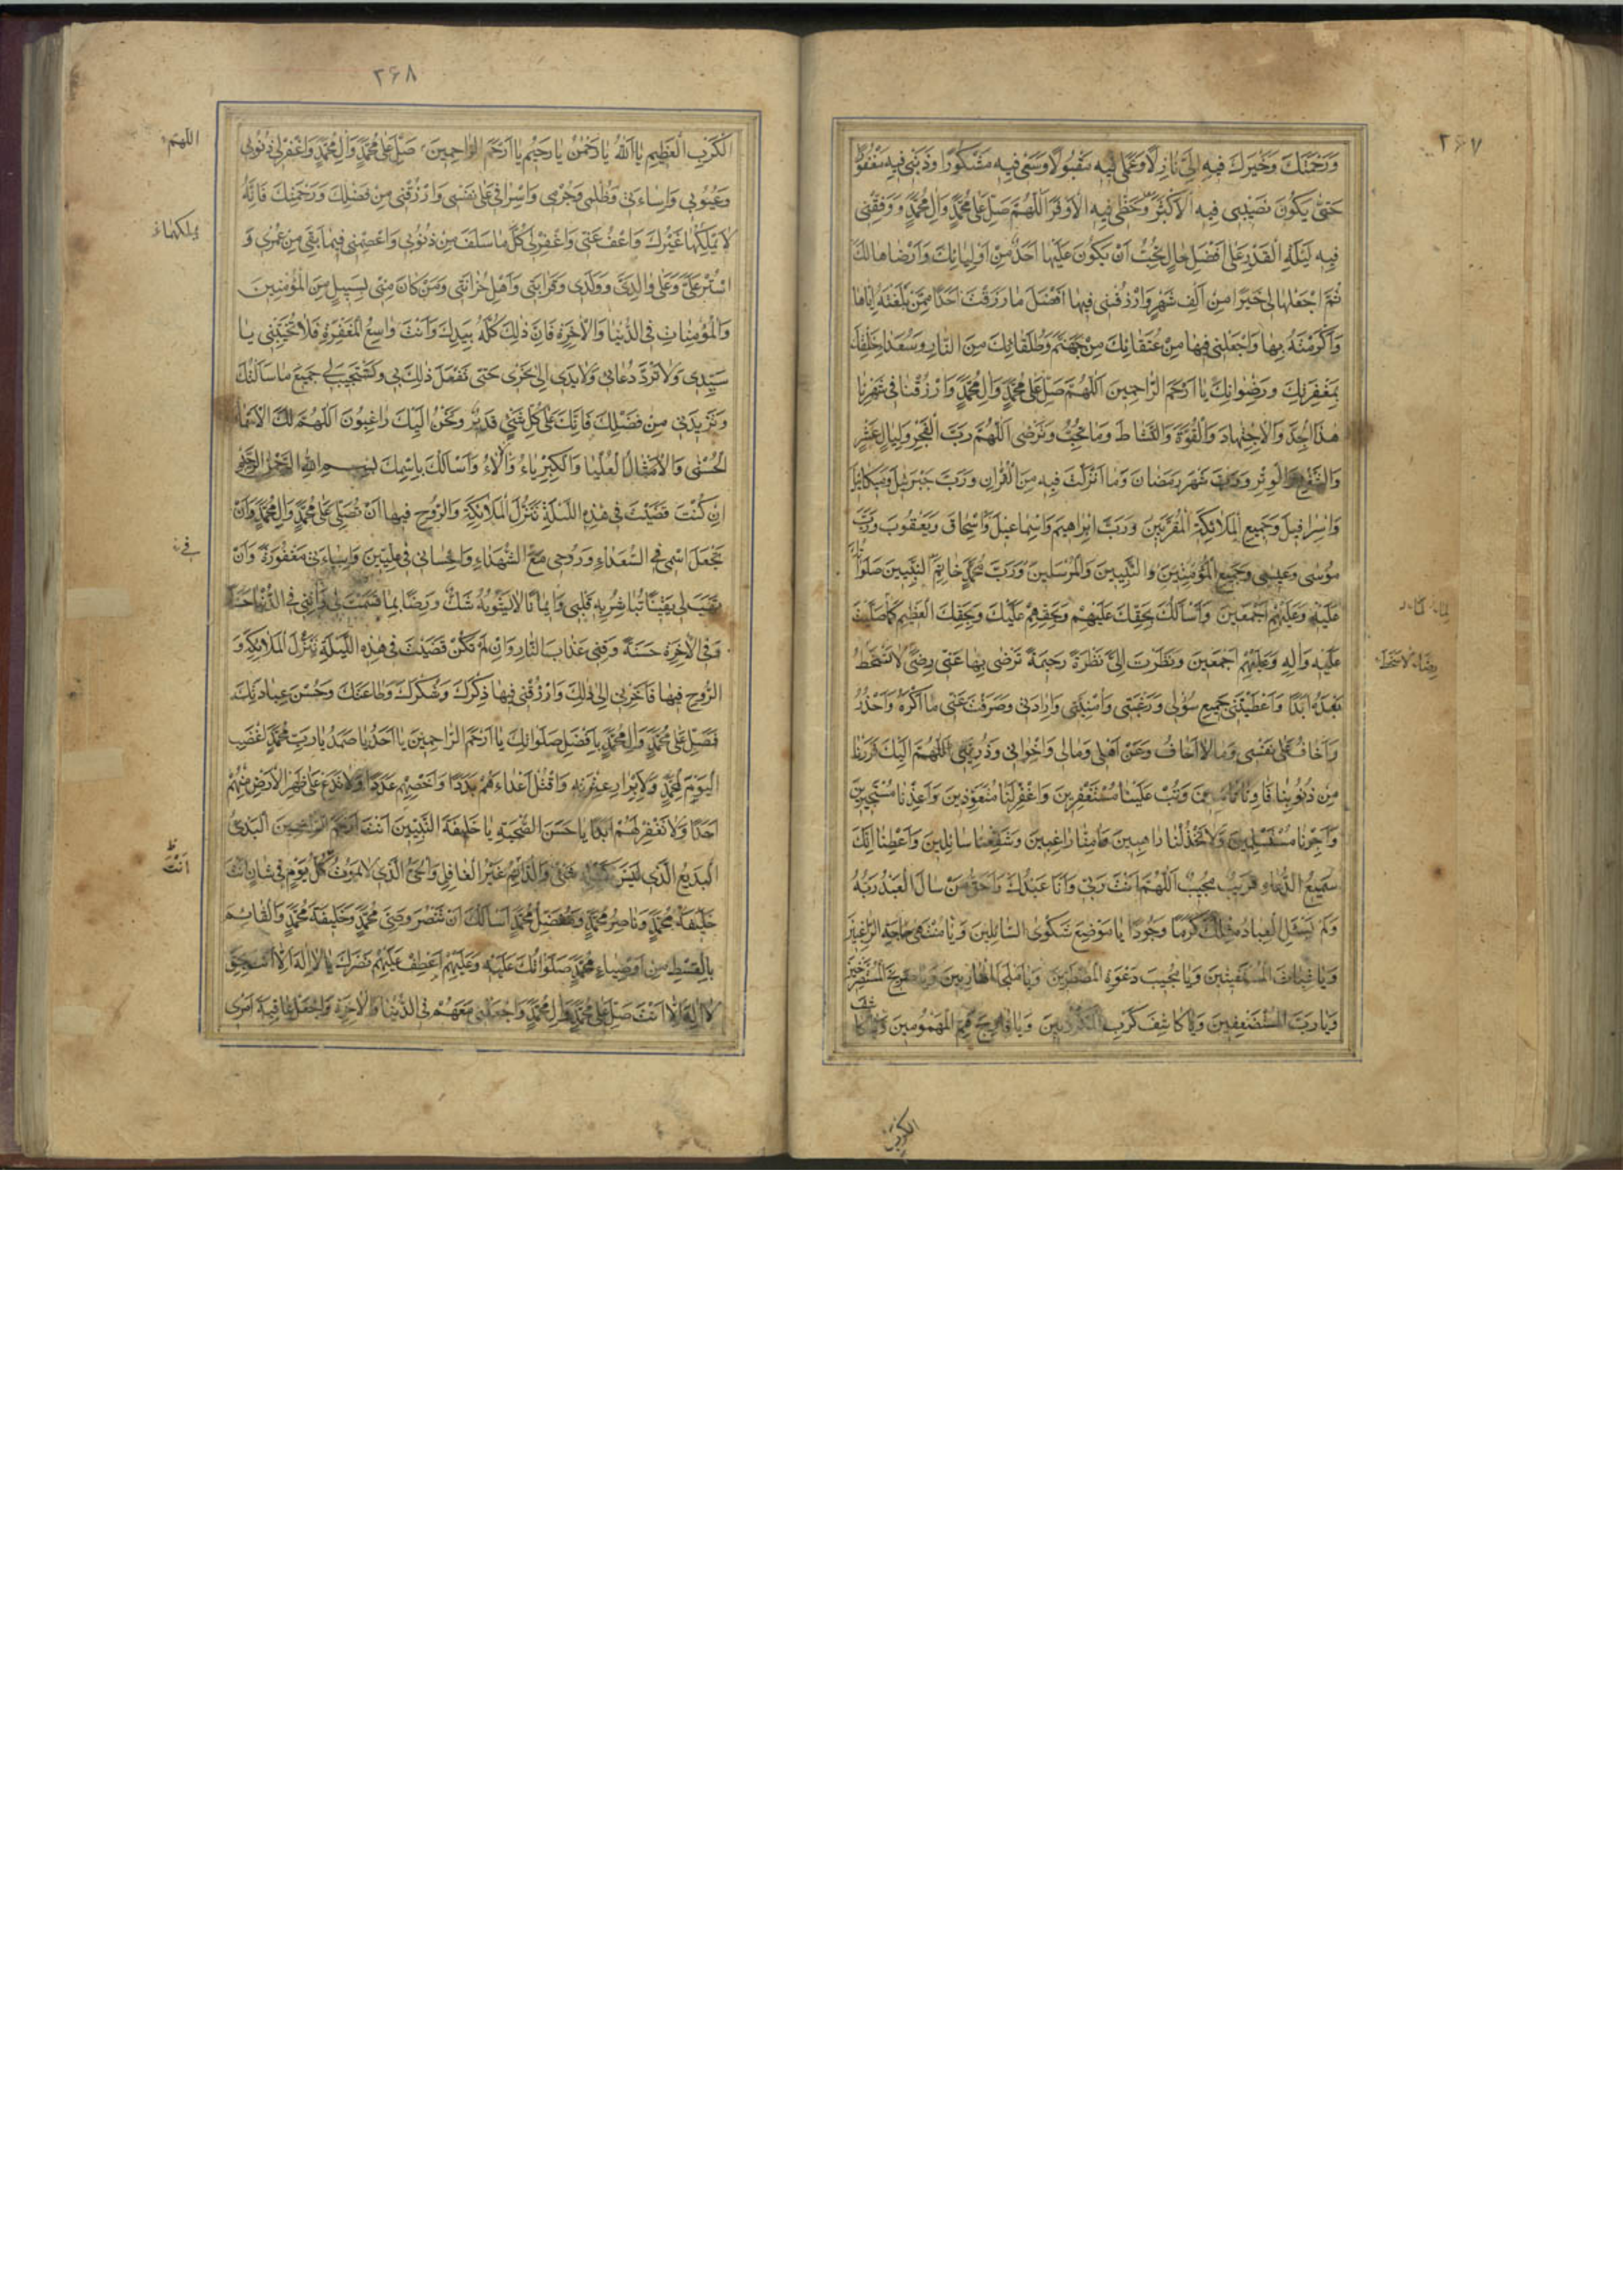 ٢۶٧
وَرَحْمَتَكَ وَخَيْرَكَ فِيهِ اِلَيَّ نَازِلًا وَعَمَلِي فِيهِ مَقْبُولًا وَسَعْيِي فِيهِ مَشْكُورًا وَذَنْبِي فِيهِ مَغْفُورًا
حَتّٰى يَكُونَ نَصِيبِي فِيهِ الْاَكْثَرَ وَحَظِّي فِيهِ الْاَوْفَرَ اَللّٰهُمَّ صَلِّ عَلٰى مُحَمَّدٍ وَاٰلِ مُحَمَّدٍ وَوَفِّقْنِي
فِيهِ لَيْلَةِ الْقَدْرِ عَلٰى اَفْضَلِ حَالٍ تُحِبُّ اَنْ يَكُونَ عَلَيْهَا اَحَدٌ مِنْ اَوْلِيَائِكَ وَاَرْضَاهَا لَكَ
ثُمَّ اجْعَلْهَا لِي خَيْرًا مِنْ اَلْفِ شَهْرٍ وَارْزُقْنِي فِيهَا اَفْضَلَ مَا رَزَقْتَ اَحَدًا مِمَّنْ بَلَّغْتَهُ اِيَّاهَا
وَاَكْرَمْتَهُ بِهَا وَاجْعَلْنِي فِيهَا مِنْ عُتَقَائِكَ مِنْ جَهَنَّمَ وَطُلَقَائِكَ مِنَ النَّارِ وَسُعَدَاءِ خَلْقِكَ
بِمَغْفِرَتِكَ وَرِضْوَانِكَ يَا اَرْحَمَ الرَّاحِمِينَ اَللّٰهُمَّ صَلِّ عَلٰى مُحَمَّدٍ وَاٰلِ مُحَمَّدٍ وَارْزُقْنَا فِي شَهْرِنَا
هٰذَا الْجِدَّ وَالْاِجْتِهَادَ وَالْقُوَّةَ وَالنَّشَاطَ وَمَا تُحِبُّ وَتَرْضٰى اَللّٰهُمَّ رَبَّ الْفَجْرِ وَلَيَالٍ عَشْرٍ
وَالشَّفْعِ وَالْوِتْرِ وَرَبَّ شَهْرِ رَمَضَانَ وَمَا اَنْزَلْتَ فِيهِ مِنَ الْقُرْاٰنِ وَرَبَّ جَبْرَئِيلَ وَمِيكَائِيلَ
وَاِسْرَافِيلَ وَجَمِيعِ الْمَلَائِكَةِ الْمُقَرَّبِينَ وَرَبَّ اِبْرَاهِيمَ وَاِسْمَاعِيلَ وَاِسْحَاقَ وَيَعْقُوبَ وَرَبَّ
مُوسٰى وَعِيسٰى وَجَمِيعِ الْمُؤْمِنِينَ وَالنَّبِيِّينَ وَالْمُرْسَلِينَ وَرَبَّ مُحَمَّدٍ خَاتَمِ النَّبِيِّينَ صَلَوَاتُكَ
عَلَيْهِ وَعَلَيْهِمْ اَجْمَعِينَ وَاَسْاَلُكَ بِحَقِّكَ عَلَيْهِمْ وَبِحَقِّهِمْ عَلَيْكَ وَبِحَقِّكَ الْعَظِيمِ لَمَّا صَلَّيْتَ
عَلَيْهِ وَاٰلِهِ وَعَلَيْهِمْ اَجْمَعِينَ وَنَظَرْتَ اِلَيَّ نَظْرَةً رَحِيمَةً تَرْضٰى بِهَا عَنِّي رِضًى لَا تَسْخَطُ
رِضًاء لا سخط
بَعْدَهُ اَبَدًا وَاَعْطَيْتَنِي جَمِيعَ سُؤْلِي وَرَغْبَتِي وَاُمْنِيَّتِي وَاِرَادَتِي وَصَرَفْتَ عَنِّي مَا اَكْرَهُ وَاَحْذَرُ
وَاَخَافُ عَلٰى نَفْسِي وَمَا لَا اَخَافُ وَعَنْ اَهْلِي وَمَالِي وَاِخْوَانِي وَذُرِّيَّتِي اَللّٰهُمَّ اِلَيْكَ فَرَرْنَا
مِنْ ذُنُوبِنَا فَاٰوِنَا تَائِبِينَ وَتُبْ عَلَيْنَا مُسْتَغْفِرِينَ وَاغْفِرْ لَنَا مُتَعَوِّذِينَ وَاَعِذْنَا مُسْتَجِيرِينَ
وَاَجِرْنَا مُسْتَسْلِمِينَ وَلَا تَخْذُلْنَا رَاهِبِينَ وَاٰمِنَّا رَاغِبِينَ وَشَفِّعْنَا سَائِلِينَ وَاَعْطِنَا اِنَّكَ
سَمِيعُ الدُّعَاءِ قَرِيبٌ مُجِيبٌ اَللّٰهُمَّ اَنْتَ رَبِّي وَاَنَا عَبْدُكَ وَاَحَقُّ مَنْ سَاَلَ الْعَبْدُ رَبَّهُ
وَلَمْ يَسْئَلِ الْعِبَادُ مِثْلَكَ كَرَمًا وَجُودًا يَا مَوْضِعَ شَكْوَى السَّائِلِينَ وَيَا مُنْتَهٰى حَاجَةِ الرَّاغِبِينَ
وَيَا غِيَاثَ الْمُسْتَغِيثِينَ وَيَا مُجِيبَ دَعْوَةِ الْمُضْطَرِّينَ وَيَا مَلْجَاَ الْهَارِبِينَ وَيَا صَرِيخَ الْمُسْتَصْرِخِينَ
وَيَا رَبَّ الْمُسْتَضْعَفِينَ وَيَا كَاشِفَ كَرْبِ الْمَكْرُوبِينَ وَيَا فَارِجَ هَمِّ الْمَهْمُومِينَ وَيَا كَاشِفَ
الكرب
٢۶٨
الْكَرْبِ الْعَظِيمِ يَا اَللّٰهُ يَا رَحْمٰنُ يَا رَحِيمُ يَا اَرْحَمَ الرَّاحِمِينَ صَلِّ عَلٰى مُحَمَّدٍ وَاٰلِ مُحَمَّدٍ وَاغْفِرْ لِي ذُنُوبِي
اللهم
وَعُيُوبِي وَاِسَاءَتِي وَظُلْمِي وَجُرْمِي وَاِسْرَافِي عَلٰى نَفْسِي وَارْزُقْنِي مِنْ فَضْلِكَ وَرَحْمَتِكَ فَاِنَّهُ
لَا يَمْلِكُهَا غَيْرُكَ وَاعْفُ عَنِّي وَاغْفِرْ لِي كُلَّ مَا سَلَفَ مِنْ ذُنُوبِي وَاعْصِمْنِي فِيمَا بَقِيَ مِنْ عُمُرِي وَ
يملكهما
اسْتُرْ عَلَيَّ وَعَلٰى وَالِدَيَّ وَوَلَدِي وَقَرَابَتِي وَاَهْلِ حُزَانَتِي وَمَنْ كَانَ مِنِّي بِسَبِيلٍ مِنَ الْمُؤْمِنِينَ
وَالْمُؤْمِنَاتِ فِي الدُّنْيَا وَالْاٰخِرَةِ فَاِنَّ ذٰلِكَ كُلَّهُ بِيَدِكَ وَاَنْتَ وَاسِعُ الْمَغْفِرَةِ فَلَا تُخَيِّبْنِي يَا
سَيِّدِي وَلَا تَرُدَّ دُعَائِي وَلَا يَدِي اِلٰى نَحْرِي حَتّٰى تَفْعَلَ ذٰلِكَ بِي وَتَسْتَجِيبَ لِي جَمِيعَ مَا سَاَلْتُكَ
وَتَزِيدَنِي مِنْ فَضْلِكَ فَاِنَّكَ عَلٰى كُلِّ شَيْءٍ قَدِيرٌ وَنَحْنُ اِلَيْكَ رَاغِبُونَ اَللّٰهُمَّ لَكَ الْاَسْمَاءُ
الْحُسْنٰى وَالْاَمْثَالُ الْعُلْيَا وَالْكِبْرِيَاءُ وَالْاٰلَاءُ وَاَسْاَلُكَ بِاسْمِكَ بِسْمِ اللّٰهِ الرَّحْمٰنِ الرَّحِيمِ
اِنْ كُنْتَ قَضَيْتَ فِي هٰذِهِ اللَّيْلَةِ تَنَزُّلَ الْمَلَائِكَةِ وَالرُّوحِ فِيهَا اَنْ تُصَلِّيَ عَلٰى مُحَمَّدٍ وَاٰلِ مُحَمَّدٍ وَاَنْ
تَجْعَلَ اسْمِي فِي السُّعَدَاءِ وَرُوحِي مَعَ الشُّهَدَاءِ وَاِحْسَانِي فِي عِلِّيِّينَ وَاِسَاءَتِي مَغْفُورَةً وَاَنْ
في
تَهَبَ لِي يَقِينًا تُبَاشِرُ بِهِ قَلْبِي وَاِيمَانًا لَا يَشُوبُهُ شَكٌّ وَرِضًا بِمَا قَسَمْتَ لِي وَاٰتِنِي فِي الدُّنْيَا حَسَنَةً
وَفِي الْاٰخِرَةِ حَسَنَةً وَقِنِي عَذَابَ النَّارِ وَاِنْ لَمْ تَكُنْ قَضَيْتَ فِي هٰذِهِ اللَّيْلَةِ تَنَزُّلَ الْمَلَائِكَةِ وَ
الرُّوحِ فِيهَا فَاَخِّرْنِي اِلٰى ذٰلِكَ وَارْزُقْنِي فِيهَا ذِكْرَكَ وَشُكْرَكَ وَطَاعَتَكَ وَحُسْنَ عِبَادَتِكَ
فَصَلِّ عَلٰى مُحَمَّدٍ وَاٰلِ مُحَمَّدٍ بِاَفْضَلِ صَلَوَاتِكَ يَا اَرْحَمَ الرَّاحِمِينَ يَا اَحَدُ يَا صَمَدُ يَا رَبَّ مُحَمَّدٍ اغْضَبِ
الْيَوْمَ لِمُحَمَّدٍ وَلِاَبْرَارِ عِتْرَتِهِ وَاقْتُلْ اَعْدَاءَهُمْ بَدَدًا وَاَحْصِهِمْ عَدَدًا وَلَا تَدَعْ عَلٰى ظَهْرِ الْاَرْضِ مِنْهُمْ
اَحَدًا وَلَا تَغْفِرْ لَهُمْ اَبَدًا يَا حَسَنَ الصُّحْبَةِ يَا خَلِيفَةَ النَّبِيِّينَ اَنْتَ اَرْحَمُ الرَّاحِمِينَ الْبَدِيُّ
الْبَدِيعُ الَّذِي لَيْسَ كَمِثْلِهِ شَيْءٌ وَالدَّائِمُ غَيْرُ الْغَافِلِ وَالْحَيُّ الَّذِي لَا يَمُوتُ كُلَّ يَوْمٍ فِي شَاْنٍ اَنْتَ
اَنْتَ
خَلِيفَةُ مُحَمَّدٍ وَنَاصِرُ مُحَمَّدٍ وَمُفَضِّلُ مُحَمَّدٍ اَسْاَلُكَ اَنْ تَنْصُرَ وَصِيَّ مُحَمَّدٍ وَخَلِيفَةَ مُحَمَّدٍ وَالْقَائِمَ
بِالْقِسْطِ مِنْ اَوْصِيَاءِ مُحَمَّدٍ صَلَوَاتُكَ عَلَيْهِ وَعَلَيْهِمْ اعْطِفْ عَلَيْهِمْ نَصْرَكَ يَا لَا اِلٰهَ اِلَّا اَنْتَ بِحَقِّ
لَا اِلٰهَ اِلَّا اَنْتَ صَلِّ عَلٰى مُحَمَّدٍ وَاٰلِ مُحَمَّدٍ وَاجْعَلْنِي مَعَهُمْ فِي الدُّنْيَا وَالْاٰخِرَةِ وَاجْعَلْ عَاقِبَةَ اَمْرِي